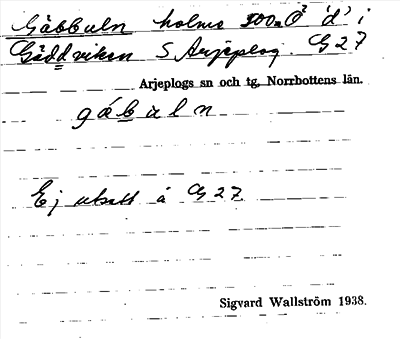 Gåbbuln holme 300m Ö 'd' i
Gäddviken S Arjeplog. G 27
Arjeplogs sn och tg, Norrbottens län.
gábuln
Ej utsatt å G 27
Sigvard Wallström 1938.